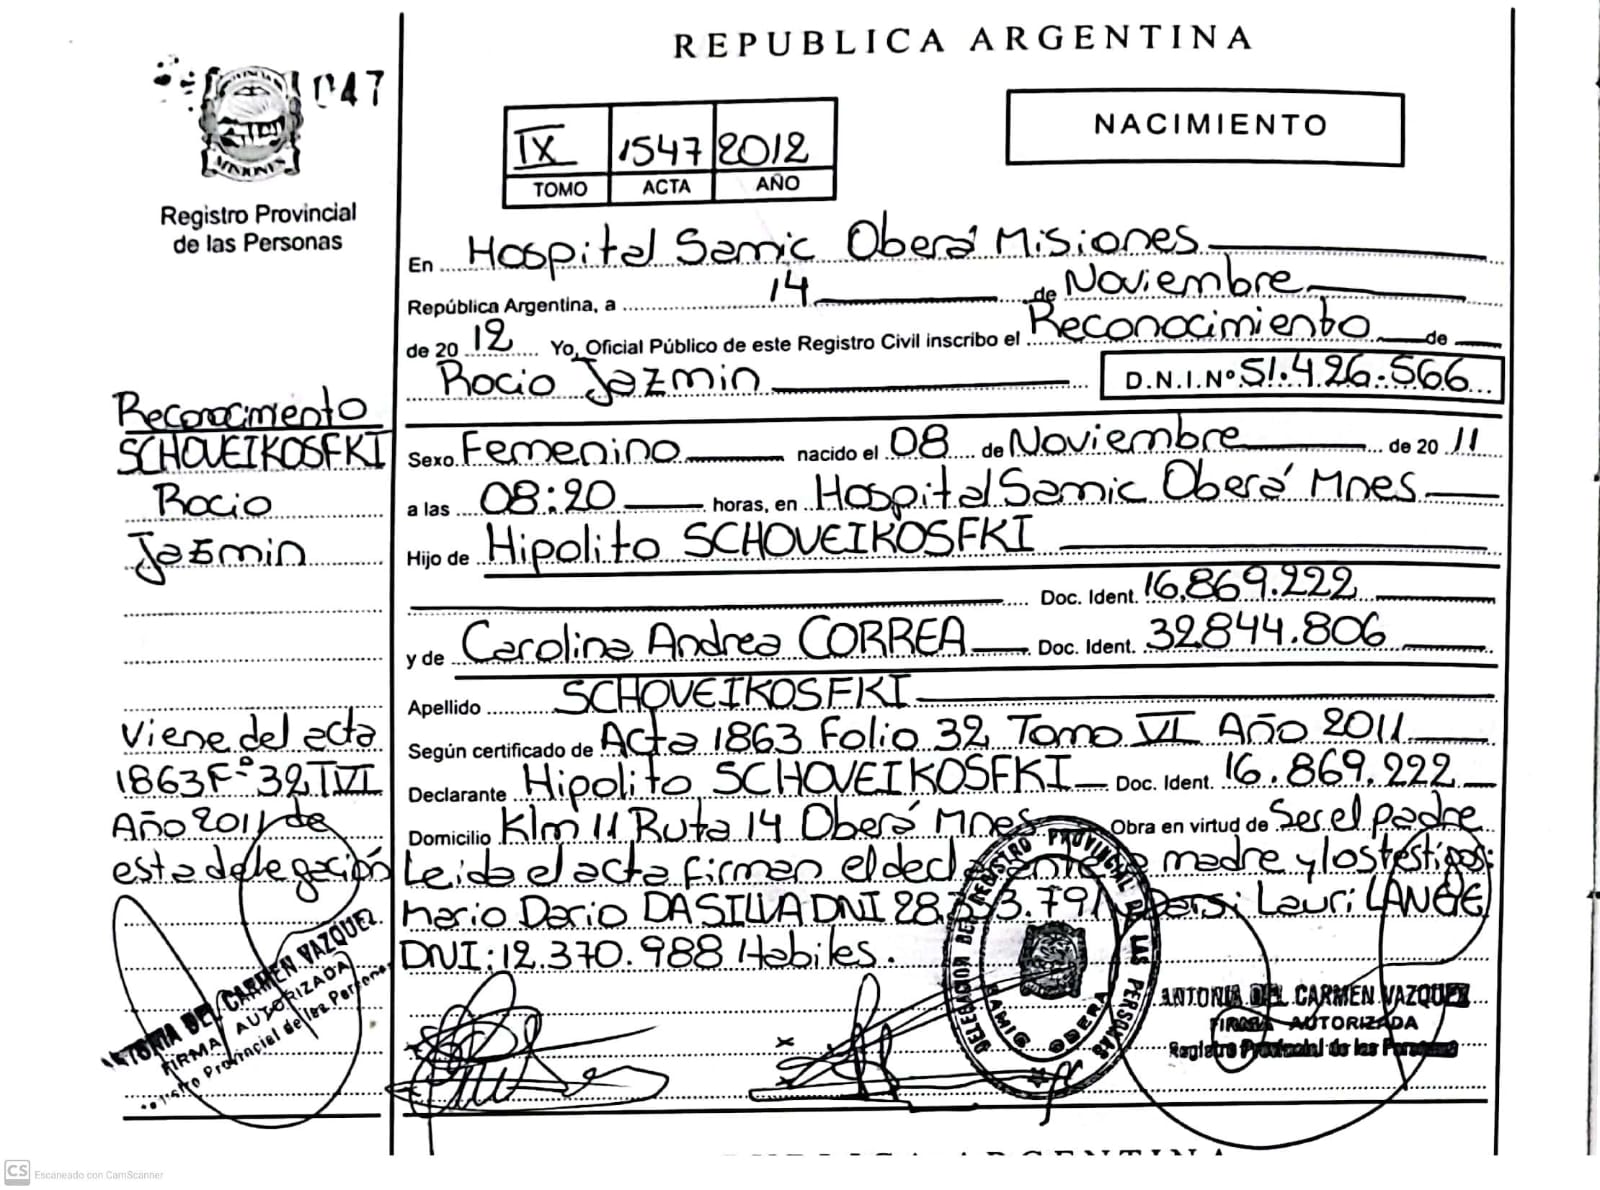 REPUBLICA ARGENTINA
047
MISIONES
Registro Provincial
de las Personas
IX 1547 2012
TOMO ACTA AÑO
NACIMIENTO
En Hospital Samic Oberá Misiones
República Argentina, a 14 de Noviembre
de 20 12 Yo, Oficial Público de este Registro Civil inscribo el Reconocimiento de
Rocio Jazmin D.N.I.Nº 51.426.566
Sexo Femenino nacido el 08 de Noviembre de 20 11
a las 08:20 horas, en Hospital Samic Oberá Mnes
Hijo de Hipolito SCHOVEIKOSFKI
Doc. Ident. 16.869.222
y de Carolina Andrea CORREA Doc. Ident. 32.844.806
Apellido SCHOVEIKOSFKI
Según certificado de Acta 1863 Folio 32 Tomo VI Año 2011
Declarante Hipolito SCHOVEIKOSFKI Doc. Ident. 16.869.222
Domicilio Klm 11 Ruta 14 Oberá Mnes Obra en virtud de Ser el padre
Leida el acta firman el madre y los testigos:
Mario Dario DA SILVA DNI Lauri LANGE
DNI: 12.370.988 Habiles.
Reconocimiento
SCHOVEIKOSFKI
Rocio
Jazmin
Viene del acta
1863 Fº 32 T VI
Año 2011 de
esta delegación
DEL CARMEN VAZQUEZ
FIRMA AUTORIZADA
Provincial de las Personas
DELEGACION DEL REGISTRO PROVINCIAL DE LAS PERSONAS
SAMIC OBERA
ANTONIA DEL CARMEN VAZQUEZ
FIRMA AUTORIZADA
Registro Provincial de las Personas
CS Escaneado con CamScanner